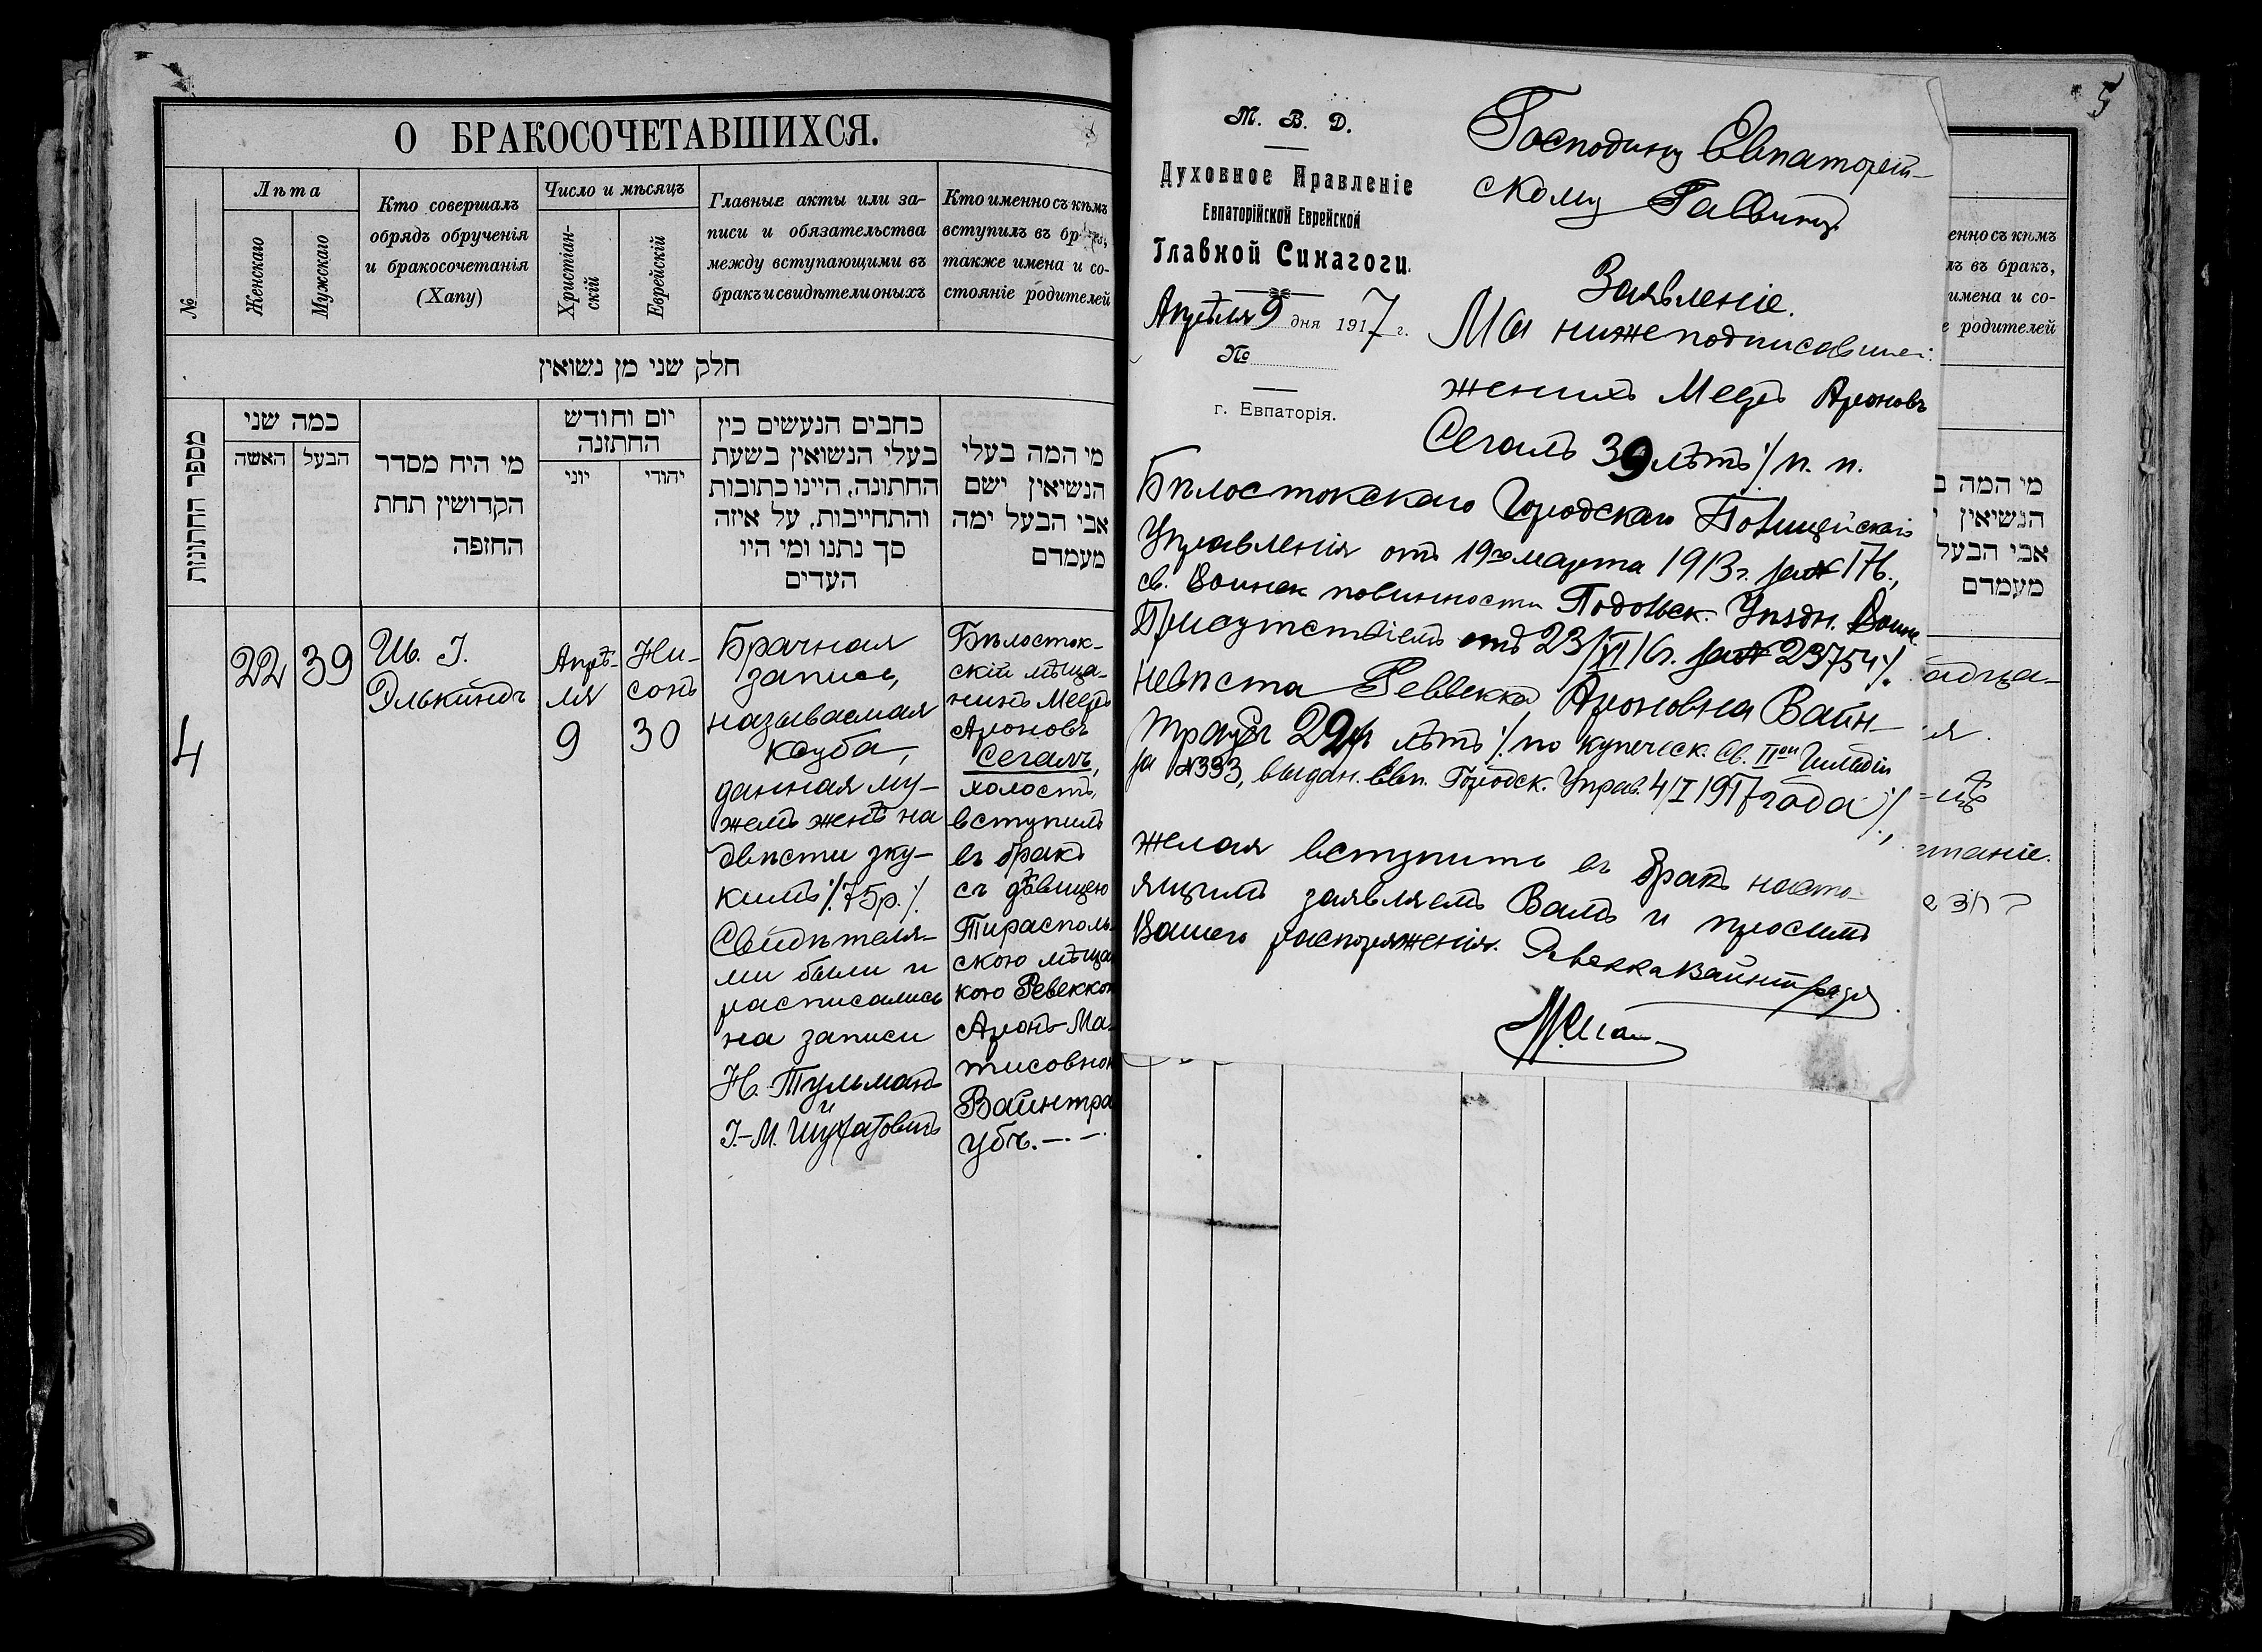 О БРАКОСОЧЕТАВШИХСЯ.
№
Лѣта
Женскаго
Мужскаго
Кто совершалъ
обрядъ обрученія
и бракосочетанія
(Хапу)
Число и мѣсяцъ
Христіан-
скій
Еврейскій
Главные акты или за-
писи и обязательства
между вступающими въ
бракъ и свидѣтели оныхъ
Кто именно съ кѣмъ
вступилъ въ бр
также имена и со-
стояніе родителей
חלק שני מן נשואין
מספר החתונות
כמה שני
האשה
הבעל
מי היח מסדר
הקדושין תחת
החופה
יום וחודש
החתונה
יוני
יהודי
כחבים הנעשים בין
בעלי הנשואין בשעת
החתונה, היינו כתובות
והתחייבות, על איזה
סך נתנו ומי היו
העדים
מי המה בעלי
הנשיאין ישם
אבי הבעל ימה
מעמדם
4
22
39
Ш. І.
Элькиндъ
Апрѣ-
ля
9
Ни-
сонъ
30
Брачная
запись,
называемая
ксуба,
данная му-
жемъ женѣ на
двѣсти зку-
кимъ ./.75р./.
Свидѣтеля-
ми были и
расписались
на записи
Н. Тульманъ
и
І.-М.
Бѣлосток-
скій мѣща-
нинъ Мееръ
Ароновъ
Сегалъ,
холостъ,
вступилъ
въ бракъ
съ дѣвицею
Тирасполь-
скою мѣща
кою Ревеккою
Аронъ-Ма-
тисовною
Вайнтра
убъ. —. —.
5
М. В. Д.
Духовное Правленіе
Евпаторійской Еврейской
Главной Синагоги.
Апрѣля 9 дня 1917 г.
№
г. Евпаторія.
Господину Евпаторій-
скому Раввину
Заявленіе.
Мы нижеподписавшиеся:
женихъ Мееръ Ароновъ
Сегалъ 39 лѣтъ ./. п. п.
Бѣлостокскаго Городскаго Полицейскаго
Управленія отъ 19го марта 1913 г. за № 176,
св. Воинск повинности Подольск. Уѣздн. Воин.
Присутствіемъ отъ 23/XI 16 г. за № 23754 ./.
невѣста Реввекка Ароновна Вайн-
траубъ 22 лѣтъ ./. по купеческ. Св. IIой Гильдіи
за №333, выдан. Евп. Городск. Управ. 4/I 1917 года ./.,
желая вступить въ бракъ насто-
ящимъ заявляемъ Вамъ и просимъ
Вашего распоряженія. Ревекка Вайнтраубъ
енно съ кѣмъ
лъ въ бракъ,
имена и со-
е родителей
מי המה ב
הנשיאין י
אבי הבעל
מעמדם